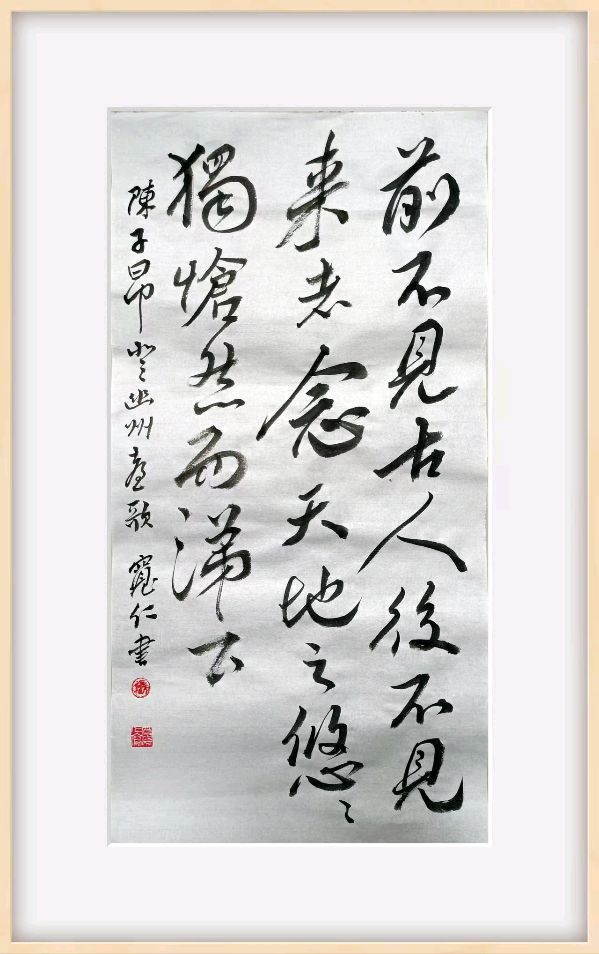 前不見古人後不見
来者念天地之悠〻
獨愴然而涕下
陳子昂登幽州臺歌 仁書